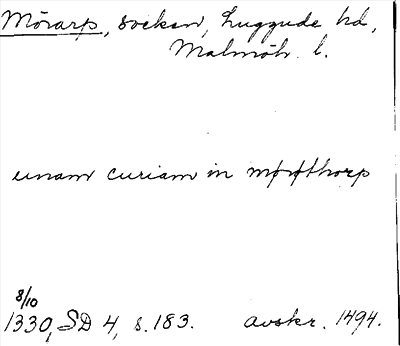 Mörarp, socken, Luggude hd,
Malmöh. l.
unam curiam in møрøthorp
8/10
1330, SD 4, s. 183. avskr. 1494.